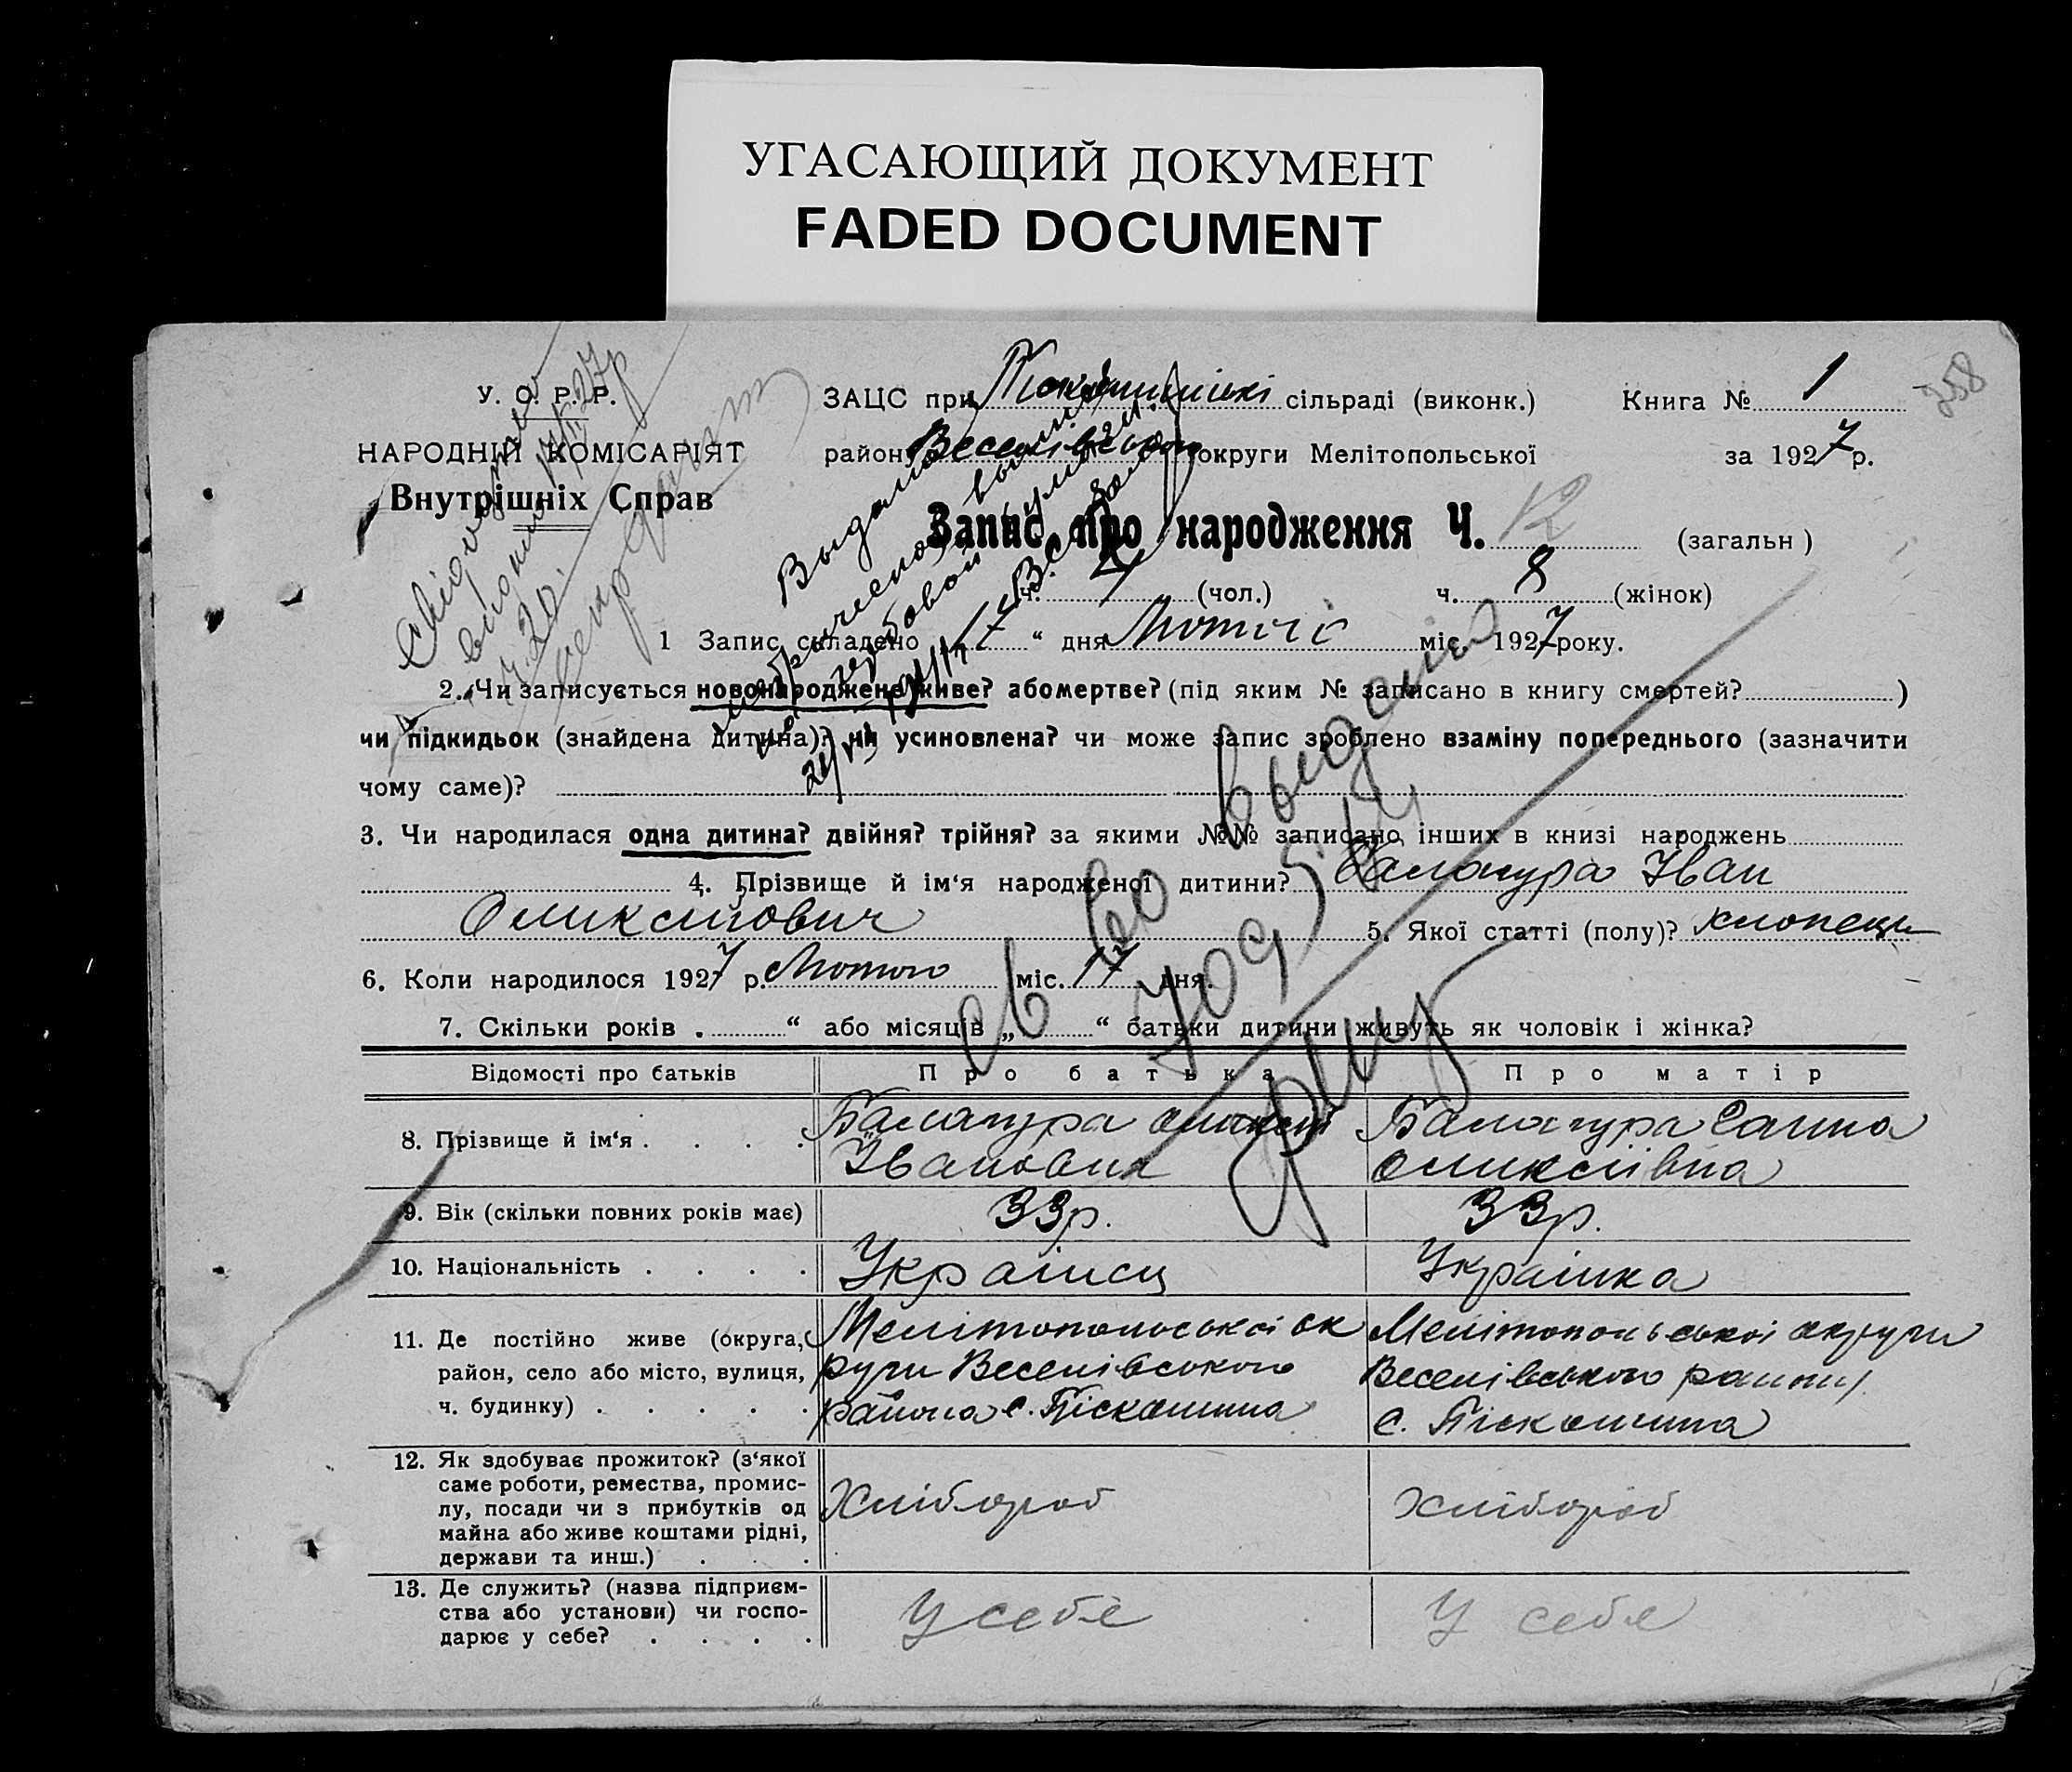 УГАСАЮЩИЙ ДОКУМЕНТ
FADED DOCUMENT
258
У. С. Р. Р.
НАРОДНІЙ КОМІСАРІЯТ
Внутрішніх Справ
ЗАЦС при сільраді (виконк.) Книга № 1
район Веселівськ округи Мелітопольської за 1927 р.
Запис про народження Ч. 12 (загальн)
ч. 4 (чол.) ч. 8 (жінок)
1 Запис складено 17 “ дня Лютого міс. 1927 року.
2. Чи записується новонароджене живе? або мертве? (під яким № записано в книгу смертей? )
чи підкидьок (знайдена дитина)? чи усиновлена? чи може запис зроблено взаміну попереднього (зазначити
чому саме)?
3. Чи народилася одна дитина? двійня? трійня? за якими №№ записано інших в книзі народжень
4. Прізвище й ім‘я народженої дитини? Балацура Іван
Оликсійович 5. Якої статті (полу)? хлопець
6. Коли народилося 1927 р. Лютого міс. 17 дня.
7. Скільки років . “ або місяців „ “ батьки дитини живуть як чоловік і жінка?
Відомості про батьків Про батька Про матір
8. Прізвище й ім‘я . . . . Балацура Іванович Балацура Ганна Оликсіівна
9. Вік (скільки повних років має) 33 р. 33 р.
10. Національність . . . . Украінец Украінка
11. Де постійно живе (округа, Мелітопольськоі ок Мелітопольськоі округи
район, село або місто, вулиця, руги Веселівського Веселівського району
ч. будинку) . . . . . района с. Піскошина с. Піскошина
12. Як здобуває прожиток? (з‘якої
саме роботи, ремества, промис-
лу, посади чи з прибутків од Хлібороб Хлібороб
майна або живе коштами рідні,
держави та инш.) . . .
13. Де служить? (назва підприєм-
ства або установи) чи госпо- У себе У себе
дарює у себе? . . . .
Свідоцтво
видано
Выдано
св во выдано